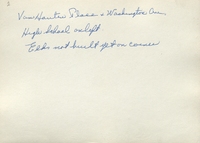 Van Houten Place & Washington Ave
High School on left
Elks not built yet on corner